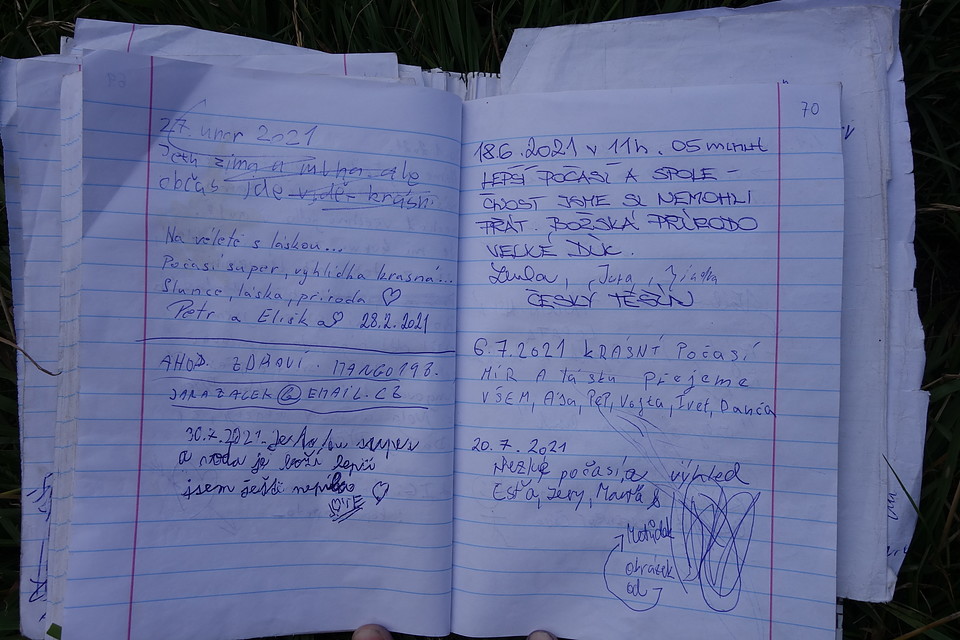 27. únor 2021
Jeth zima a mlha ale
občas jde vidět krásn
Na véletě s láskou...
Počasí super, vyhlídka krasná...
Slunce, láska, příroda ♡
Petr a Eliška ♡ 28.2.2021
AHOJ. ZDRAVÍ. MANGO198.
JARAZALEK@EMAIL.CZ
30.7.2021. Je to tu super
a voda je boží lepší
jsem ještě nepila ♡
70
18.6.2021 v 11h. 05 minut
LEPŠÍ POČASÍ A SPOLE-
ČNOST JSME SI NEMOHLI
PŘÁT. BOŽSKÁ PŘÍRODO
VELKÉ DÍK.
Lenka, Jura,
ČESKÝ TĚŠÍN
6.7.2021 KRÁSNÍ Počasí
MÍR A lásku přejeme
VŠEM, Ája, PEP, Vojta, Ivet, Danča
20.7.2021
Hezké počasí, a výhled
Esťa, Jery,
Metůdek
obrázek
od